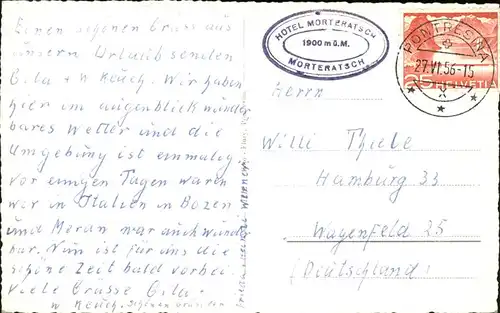 Einen schönen Gruss aus
unserm Urlaub senden
Gila + W. Keuch. Wir haben
hier im augenblick wunder
bares Wetter und die
Umgebung ist einmalig
vor einigen Tagen waren
wir in Italien in Bozen
und Meran war auch wunder
bar. Nun ist für uns die
schöne Zeit bald vorbei.
Viele Grüsse Gila-
W Keuch.
HOTEL MORTERATSCH
1900 m ü. M.
MORTERATSCH
PONTRESINA
27.VI.56-15
25 HELVETIA
Herrn
Willi Thiele
Hamburg 33
Wagenfeld 25
(Deutschland)